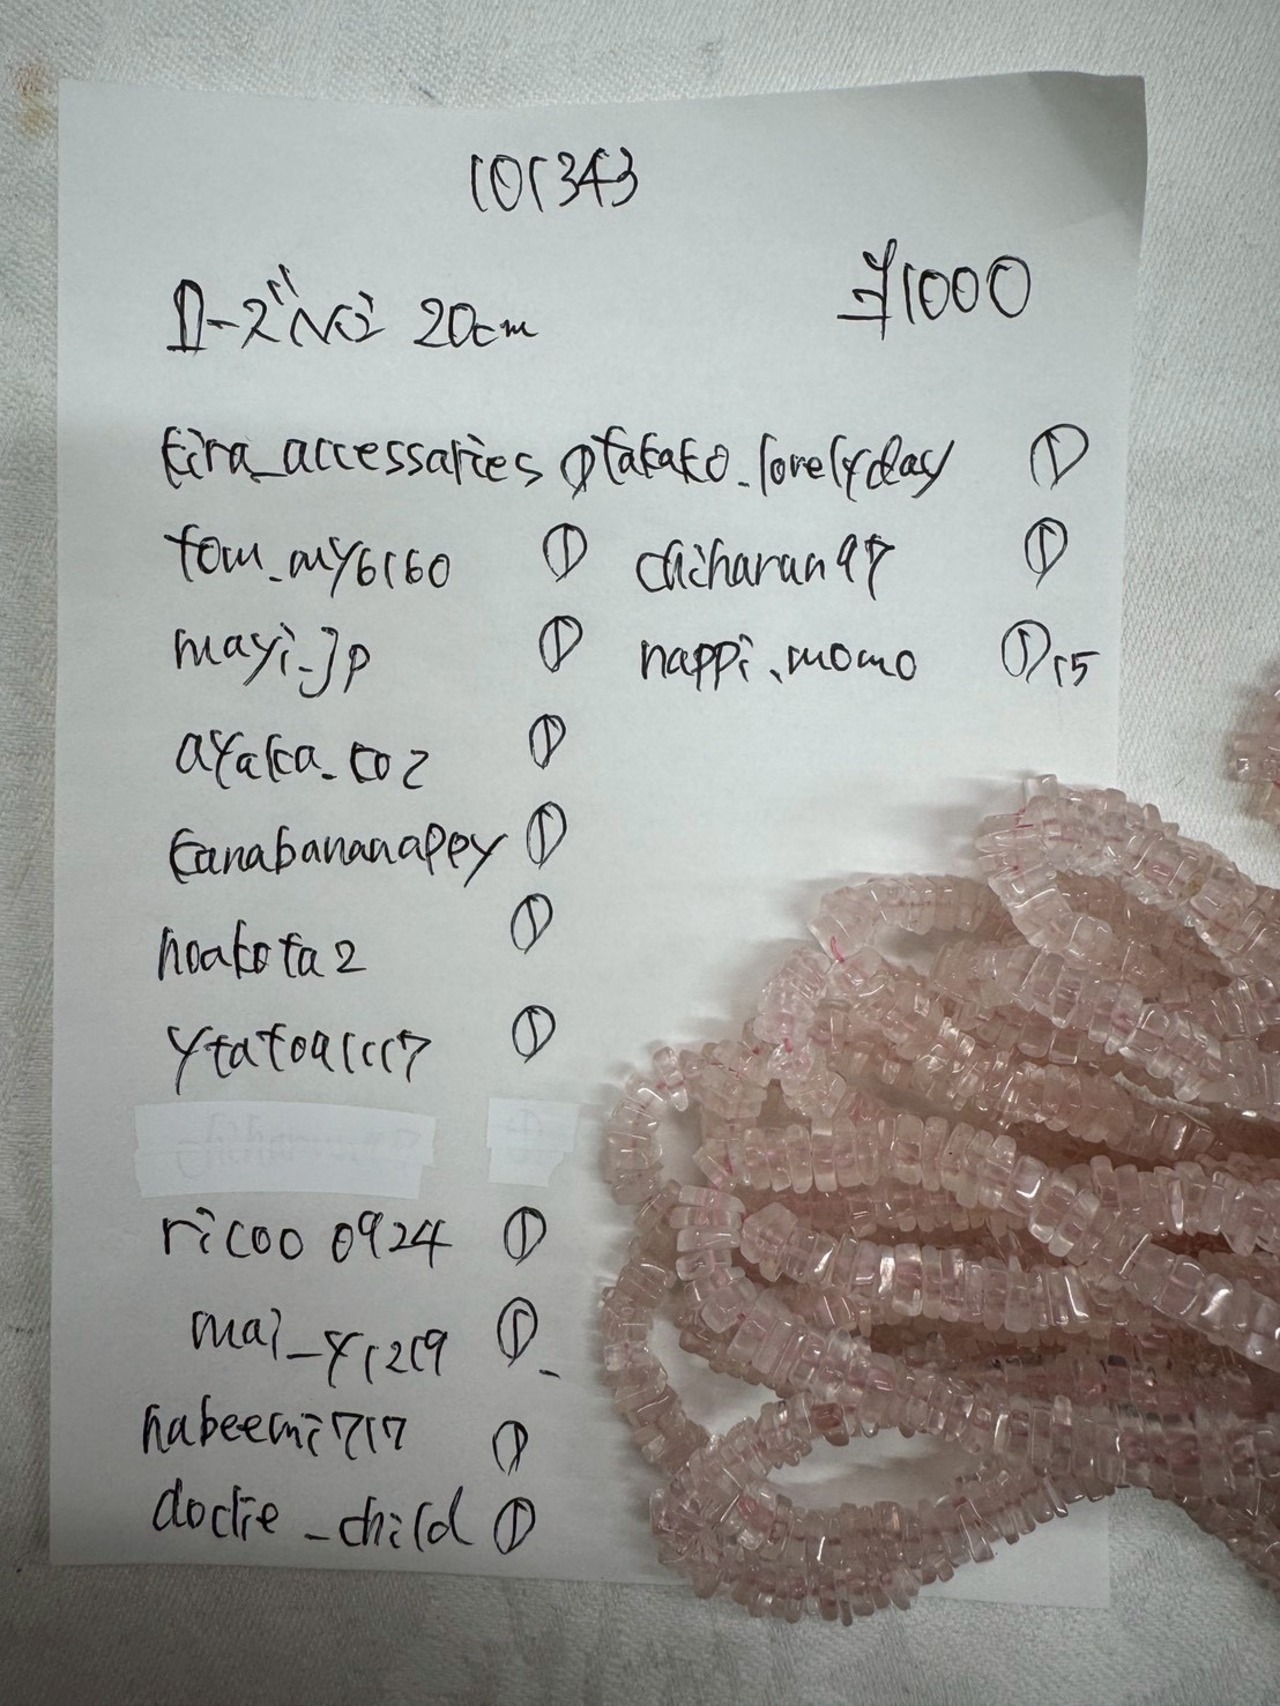 101343
ローズNo2 20cm ¥1000
kira_accessaries ①
takako_lovelyday ①
tom_my6160 ①
chicharan97 ①
mayi_jp ①
nappi.momo ① 15
ayaka_co2 ①
kanabananappy ①
noakota2 ①
ytatoa1117 ①
ricoo0924 ①
mai_y1219 ①
nabeemi717 ①
doclie_child ①